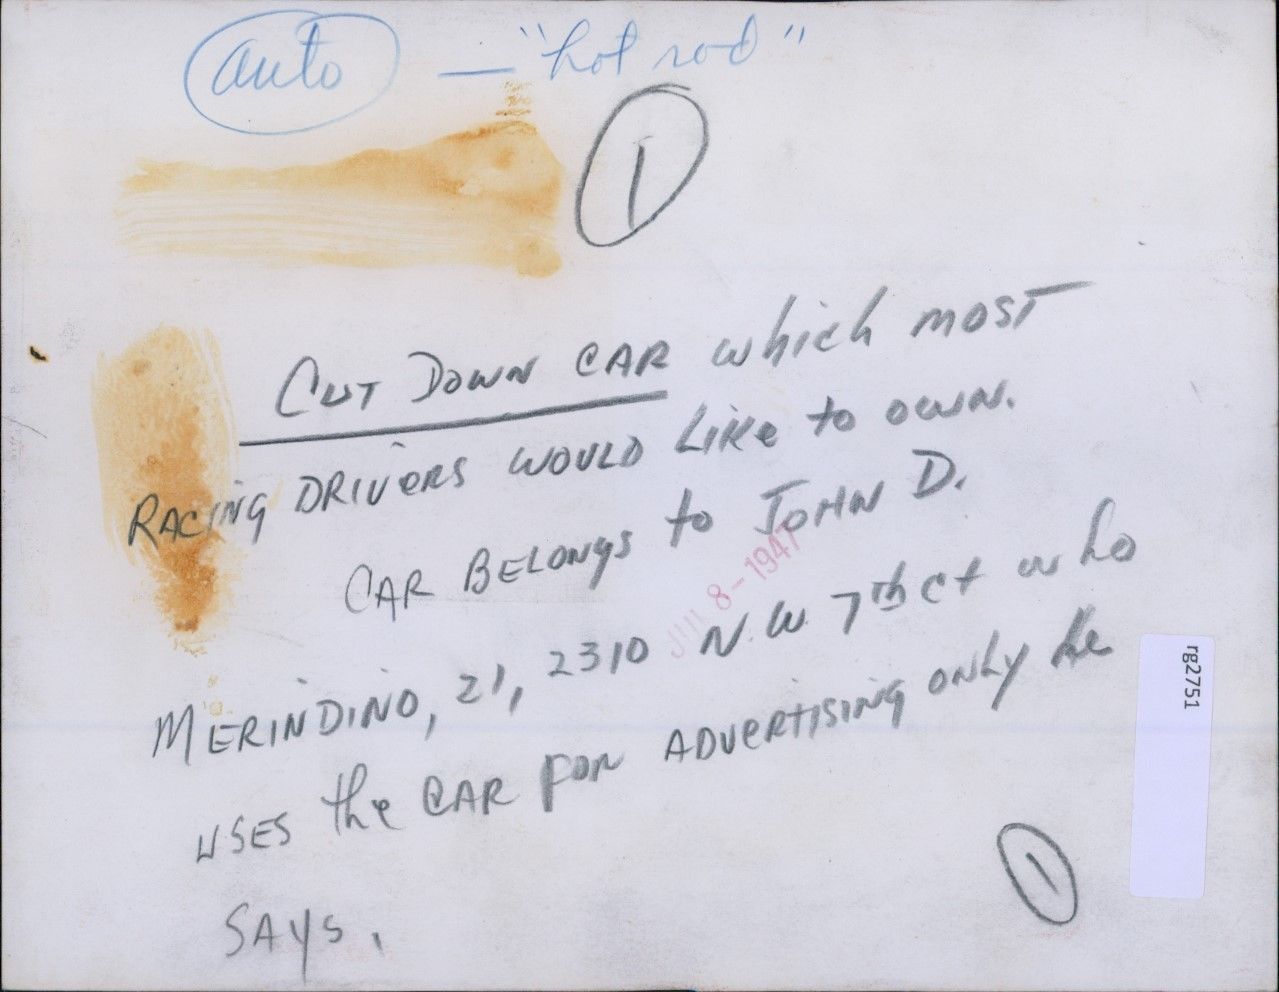 auto — "hot rod"
1
CUT DOWN CAR which most
RACING DRIVERS WOULD LIKE to OWN.
CAR BELONGS to JOHN D.
JUL 8 - 1947
MERINDINO, 21, 2310 N.W. 7th ct who
USES the CAR FOR ADVERTISING ONLY he
SAYS.
1
rg2751